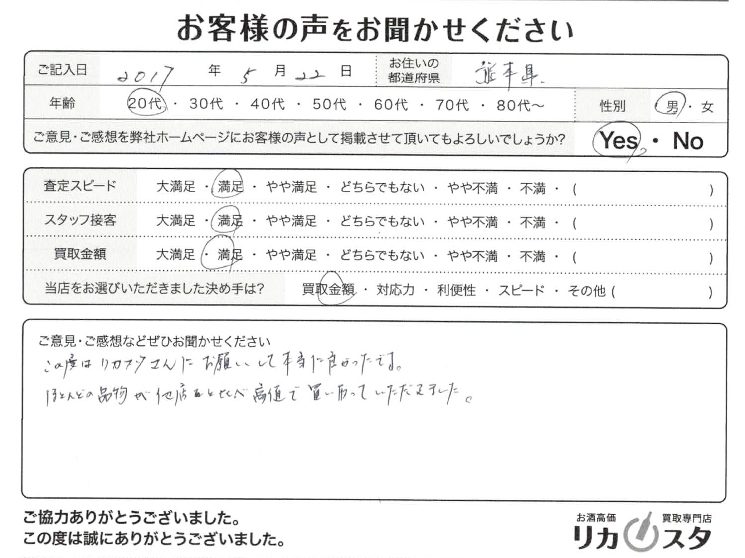 お客様の声をお聞かせください
ご記入日 2017 年 5 月 22 日 お住いの都道府県 熊本県
年齢 20代・30代・40代・50代・60代・70代・80代〜 性別 男・女
ご意見・ご感想を弊社ホームページにお客様の声として掲載させて頂いてもよろしいでしょうか? Yes・No
査定スピード 大満足・満足・やや満足・どちらでもない・やや不満・不満・( )
スタッフ接客 大満足・満足・やや満足・どちらでもない・やや不満・不満・( )
買取金額 大満足・満足・やや満足・どちらでもない・やや不満・不満・( )
当店をお選びいただきました決め手は? 買取金額・対応力・利便性・スピード・その他( )
ご意見・ご感想などぜひお聞かせください
この度はリカスタさんにお願いして本当に良かったです。
ほとんどの品物が他店とくらべ高値で買い取っていただきました。
ご協力ありがとうございました。
この度は誠にありがとうございました。
お酒高価 買取専門店
リカスタ